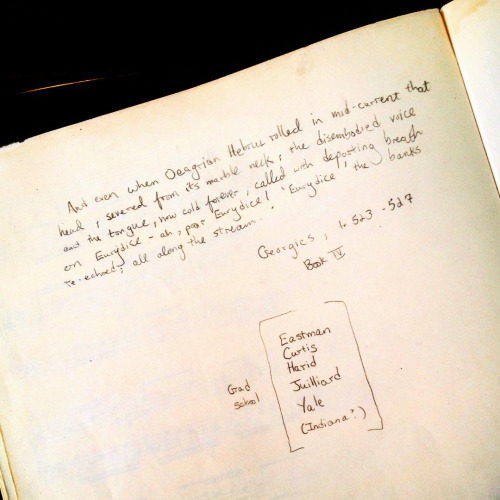 And even when Oeagrian Hebrus rolled in mid-current that
head, severed from its marble neck, the disembodied voice
and the tongue, now cold forever, called with departing breath
on Eurydice - ah, poor Eurydice! 'Eurydice', the banks
re-echoed, all along the stream.
Georgics, l. 523 - 527
Book IV
Eastman
Curtis
Harid
Juilliard
Yale
(Indiana?)
Grad
school